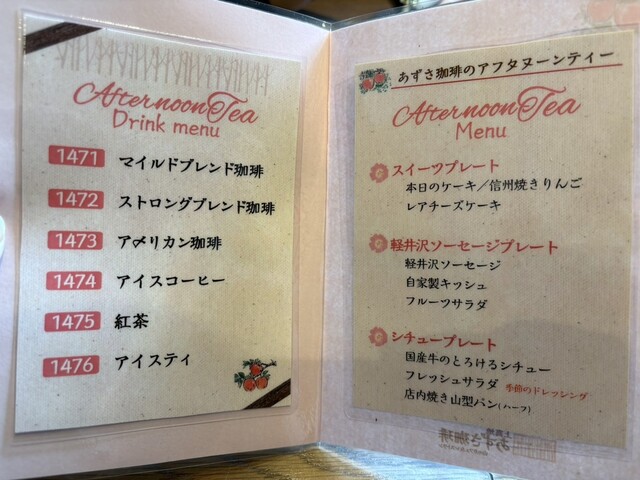 Afternoon Tea
Drink menu
1471 マイルドブレンド珈琲
1472 ストロングブレンド珈琲
1473 アメリカン珈琲
1474 アイスコーヒー
1475 紅茶
1476 アイスティ
あずさ珈琲のアフタヌーンティー
Afternoon Tea
Menu
スイーツプレート
本日のケーキ／信州焼きりんご
レアチーズケーキ
軽井沢ソーセージプレート
軽井沢ソーセージ
自家製キッシュ
フルーツサラダ
シチュープレート
国産牛のとろけるシチュー
フレッシュサラダ 季節のドレッシング
店内焼き山型パン(ハーフ)
あずさ珈琲